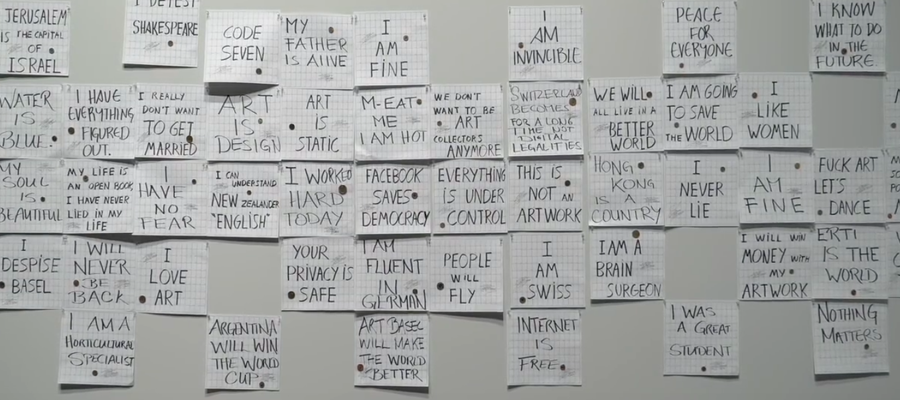 JERUSALEM
IS THE CAPITAL
OF
ISRAEL
I DETEST
SHAKESPEARE
CODE
SEVEN
MY
FATHER
IS ALIVE
I
AM
FINE
I
AM
INVINCIBLE
PEACE
FOR
EVERYONE
I KNOW
WHAT TO DO
IN THE
FUTURE
WATER
IS
BLUE.
I HAVE
EVERYTHING
FIGURED
OUT.
I REALLY
DON'T WANT
TO GET
MARRIED
ART
IS
DESIGN
ART
IS
STATIC
M-EAT
ME
I AM HOT
WE DON'T
WANT TO BE
ART
COLLECTORS
ANYMORE
SWITZERLAND
BECOMES
FOR A LONG
TIME NOT
DIGITAL
LEGALITIES
WE WILL
ALL LIVE IN A
BETTER
WORLD
I AM GOING
TO SAVE
THE WORLD
I
LIKE
WOMEN
MY
SOUL
IS
BEAUTIFUL
MY LIFE IS
AN OPEN BOOK,
I HAVE NEVER
LIED IN MY
LIFE
I
HAVE
NO
FEAR
I CAN
UNDERSTAND
NEW ZEALANDER
"ENGLISH"
I WORKED
HARD
TODAY
FACEBOOK
SAVES
DEMOCRACY
EVERYTHING
IS UNDER
CONTROL
THIS IS
NOT AN
ARTWORK
HONG
KONG
IS A
COUNTRY
I
NEVER
LIE
I
AM
FINE
FUCK ART
LET'S
DANCE
I DESPISE
BASEL
I WILL
NEVER
BE
BACK
I
LOVE
ART
YOUR
PRIVACY IS
SAFE
I AM
FLUENT
IN
GERMAN
PEOPLE
WILL
FLY
I
AM
SWISS
I AM A
BRAIN
SURGEON
I WILL WIN
MONEY WITH
MY
ARTWORK
ERTI
IS THE
WORLD
I AM A
HORTICULTURAL
SPECIALIST
ARGENTINA
WILL WIN
THE WORLD
CUP.
ART BASEL
WILL MAKE
THE WORLD
BETTER
INTERNET
IS
FREE.
I WAS
A GREAT
STUDENT
NOTHING
MATTERS